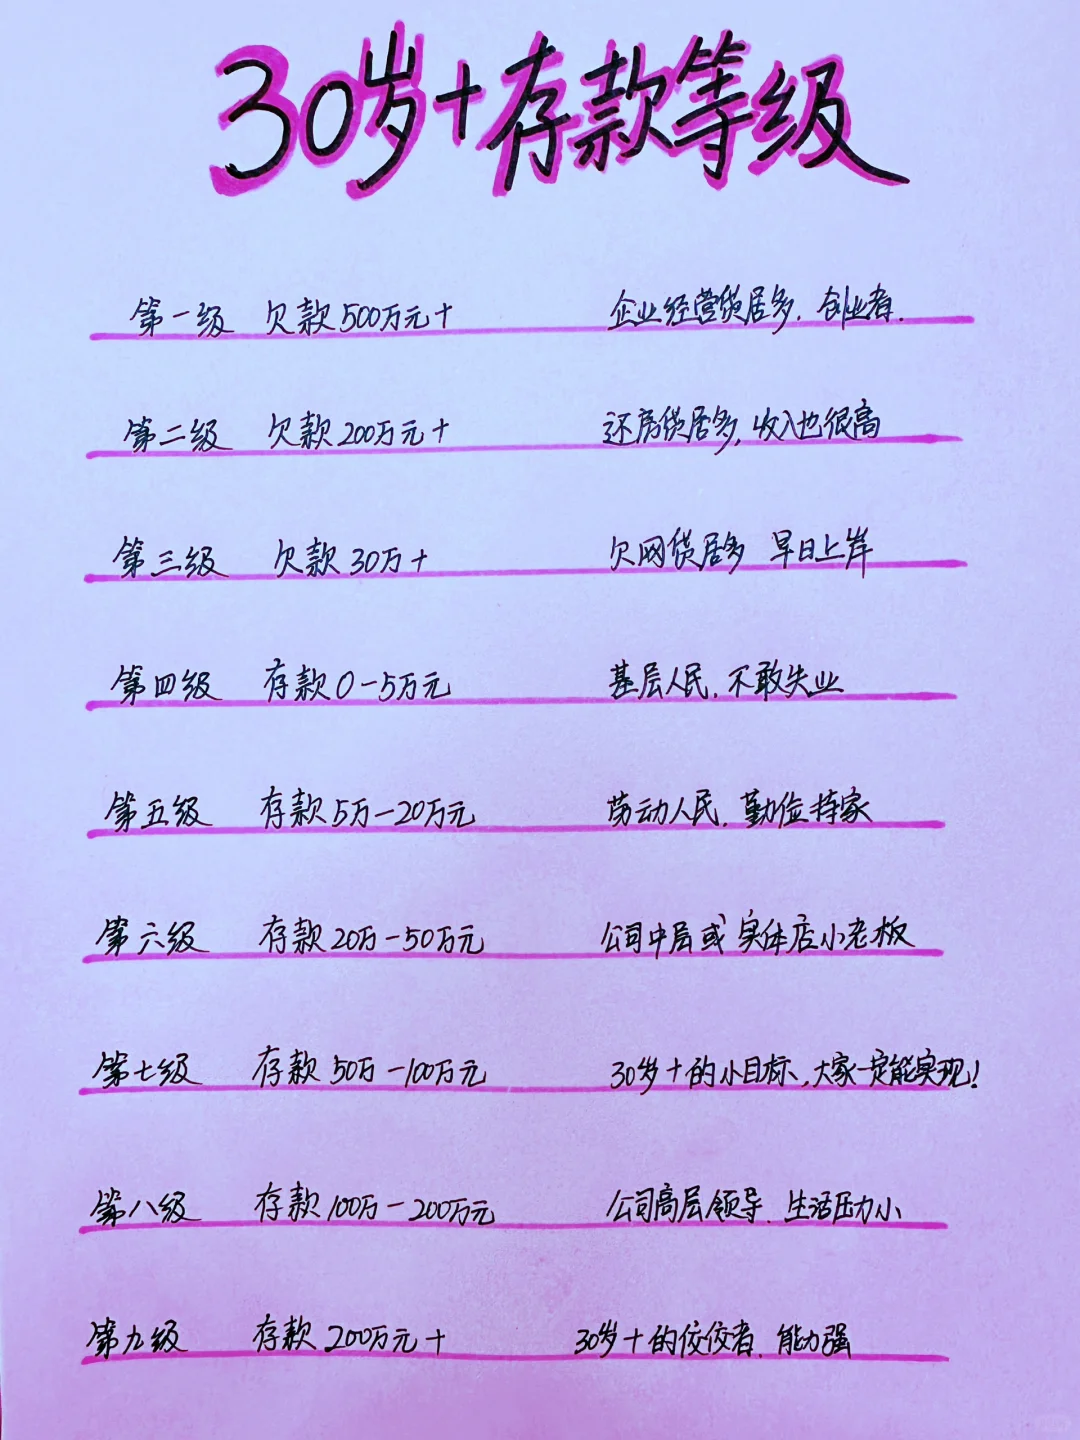 30岁+存款等级
第一级 欠款500万元+ 企业经营贷居多.创业者.
第二级 欠款200万元+ 还房贷居多,收入也很高
第三级 欠款30万+ 欠网贷居多 早日上岸
第四级 存款0-5万元 基层人民.不敢失业
第五级 存款5万-20万元 劳动人民.勤俭持家
第六级 存款20万-50万元 公司中层或实体店小老板
第七级 存款50万-100万元 30岁+的小目标,大家一定能实现!
第八级 存款100万-200万元 公司高层领导.生活压力小
第九级 存款200万元+ 30岁+的佼佼者.能力强